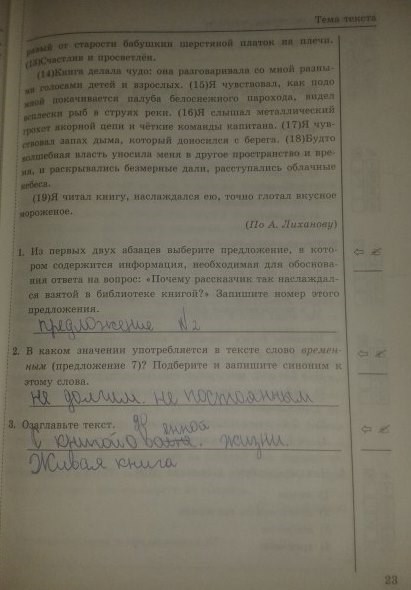 Тема текста
от старости бабушкин шерстяной платок на плечи.
(13)Счастлив и просветлён.
(14)Книга делала чудо: она разговаривала со мной разны-
ми голосами детей и взрослых. (15)Я чувствовал, как подо
мной покачивается палуба белоснежного парохода, видел
всплески рыб в струях реки. (16)Я слышал металлический
грохот якорной цепи и чёткие команды капитана. (17)Я чув-
ствовал запах дыма, который доносился с берега. (18)Будто
волшебная власть уносила меня в другое пространство и вре-
мя, и раскрывались безмерные дали, расступались облачные
небеса.
(19)Я читал книгу, наслаждался ею, точно глотал вкусное
мороженое.
(По А. Лиханову)
1. Из первых двух абзацев выберите предложение, в кото-
ром содержится информация, необходимая для обоснова-
ния ответа на вопрос: «Почему рассказчик так наслаждал-
ся взятой в библиотеке книгой?» Запишите номер этого
предложения.
предложение №2
2. В каком значении употребляется в тексте слово времен-
ным (предложение 7)? Подберите и запишите синоним к
этому слова.
не долгим. не постоянным
3. Озаглавьте текст.
с книгой жизни.
Живая книга
23